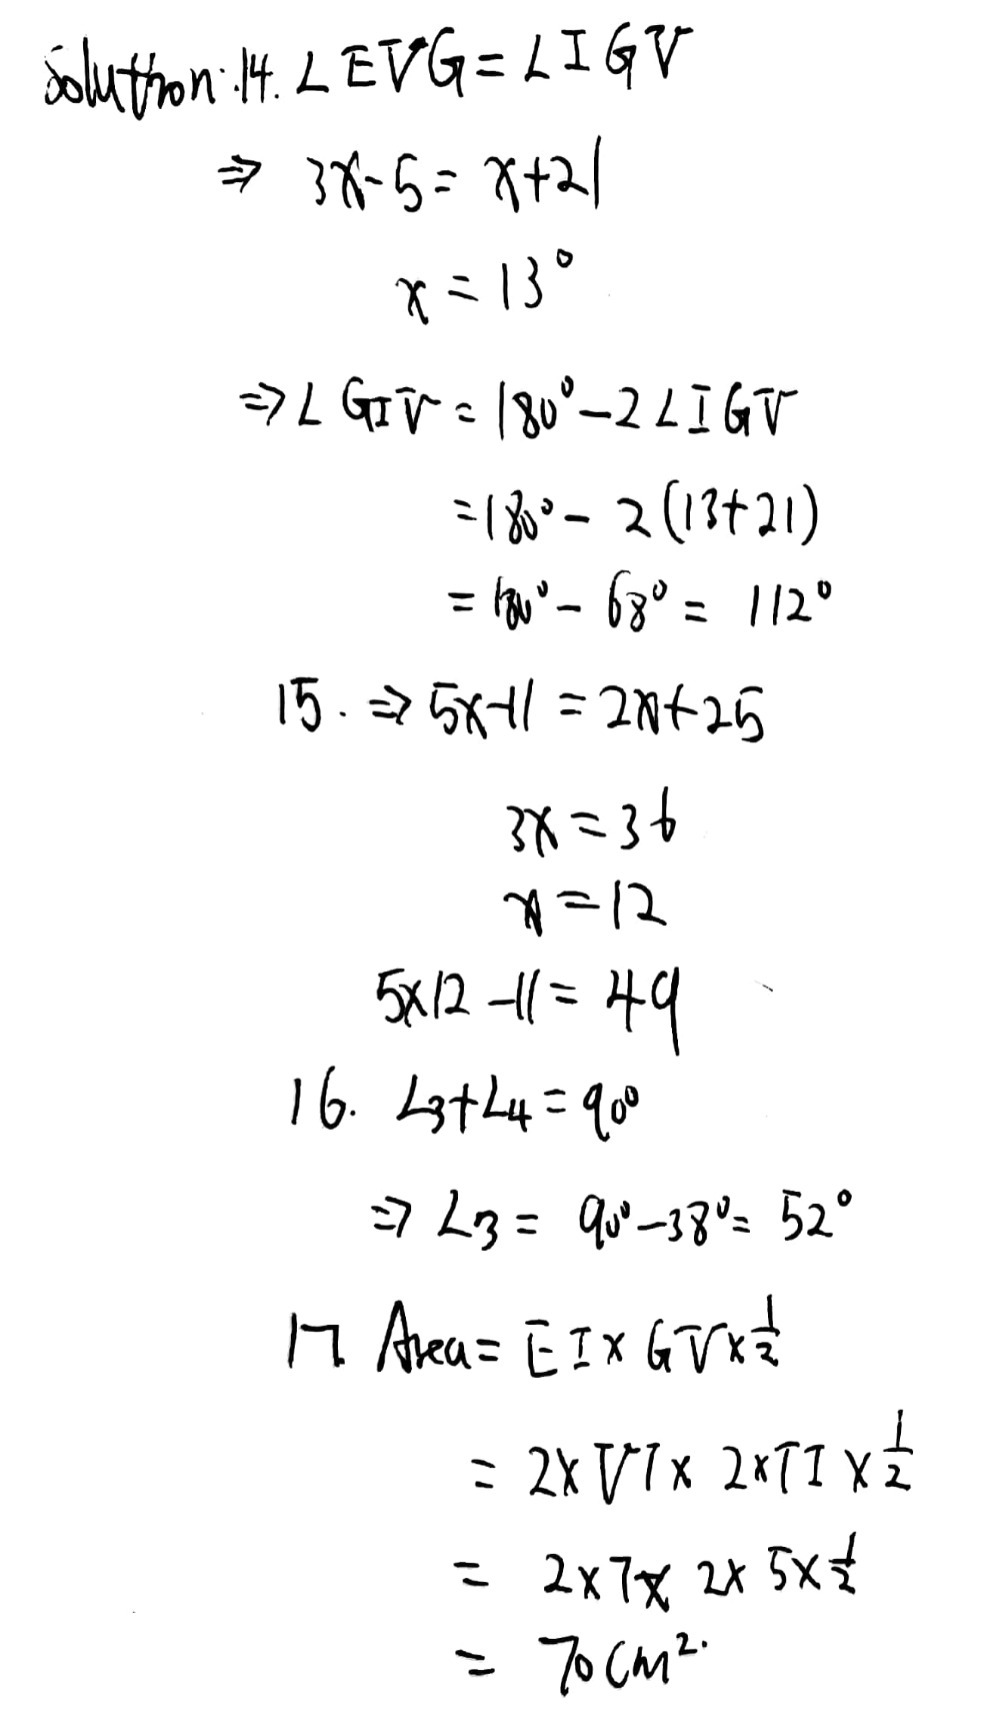 Solution: 14. ∠EVG = ∠IGV
⇒ 3x-5 = x+21
x = 13°
⇒ ∠GIV = 180° - 2∠IGV
= 180° - 2(13+21)
= 180° - 68° = 112°
15. ⇒ 5x-11 = 2x+25
3x = 36
x = 12
5×12 -11 = 49
16. ∠3+∠4 = 90°
⇒ ∠3 = 90° - 38° = 52°
17 Area = EI × GV × 1/2
= 2× VT × 2×TI × 1/2
= 2×7× 2× 5× 1/2
= 70cm².